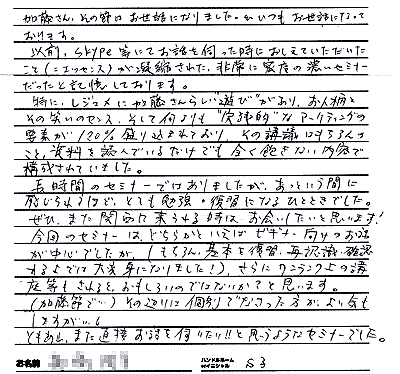 加藤さん、その節はお世話になりました。いつもお世話になって
おります。
以前、skype 等にてお話を伺った時におしえていただいた
こと(エッセンス)が凝縮された、非常に密度の濃いセミナー
だったと記憶しております。
特に、レジュメに加藤さんらしい"遊び"があり、お人柄と
その笑いのセンス、そして何よりも"実践的"なマーケティングの
要素が120%盛り込まれており、その講議はもちろんの
こと、資料を読んでいるだけでも全く飽きない内容で
構成されていました。
長時間のセミナーではありましたが、あっという間に
感じられるほど、とても勉強・復習になるひとときでした。
ぜひ、また関西に来られる時は、お会いしたいと思います!
今回のセミナーは、どちらかといえばビギナー向けのお話
が中心でしたが、(もちろん、基本を復習、再認識、確認
れる上では大変身になりました!)、さらにワンランク上の講
座等もされると、おもしろいのではないかと思います。
(加藤節で…) その辺りは個別でなさった方が、よい気も
しますが…。
ともあれ、また直接お話を伺いたい!!と思うようなセミナーでした。
お名前
ハンドルネーム
orイニシャル
S3